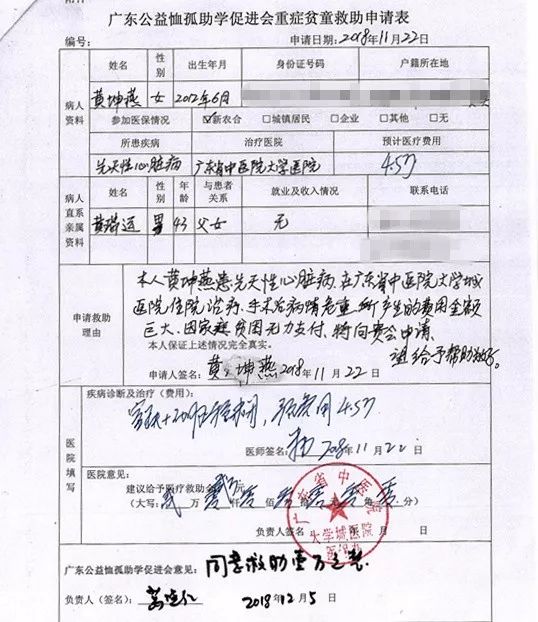 广东公益恤孤助学促进会重症贫童救助申请表
编号： 申请日期：2018年11月22日
病人资料 姓名 性别 出生年月 身份证号码 户籍所在地
黄坤燕 女 2012年6月
参加医保情况 ☑新农合 □城镇居民 □企业 □其他 □无
所患疾病 治疗医院 预计医疗费用
先天性心脏病 广东省中医院大学医院 4.5万
病人直系亲属资料 姓名 性别 年龄 与患者关系 就业及收入情况 联系电话
黄 男 43 父女 无
申请救助理由
本人黄坤燕患先天性心脏病,在广东省中医院大学城
医院住院治疗,手术后病情危重,所产生的费用金额
巨大、因家庭贫困无力支付,特向贵会申请,
请给予帮助
本人保证上述情况完全真实。
申请人签名：黄坤燕 2018年11月22日
医院填写
疾病诊断及治疗（费用）：
4.5万
医师签名： 2018年11月22日
医院意见：
建议给予医疗救助金 元
（大写：贰万零仟零佰零拾零元零角零分）
负责人签名： 年 月 日
广东省中医院
大学城医院
广东公益恤孤助学促进会意见：同意救助壹万元整.
负责人（签名）： 2018年12月5日